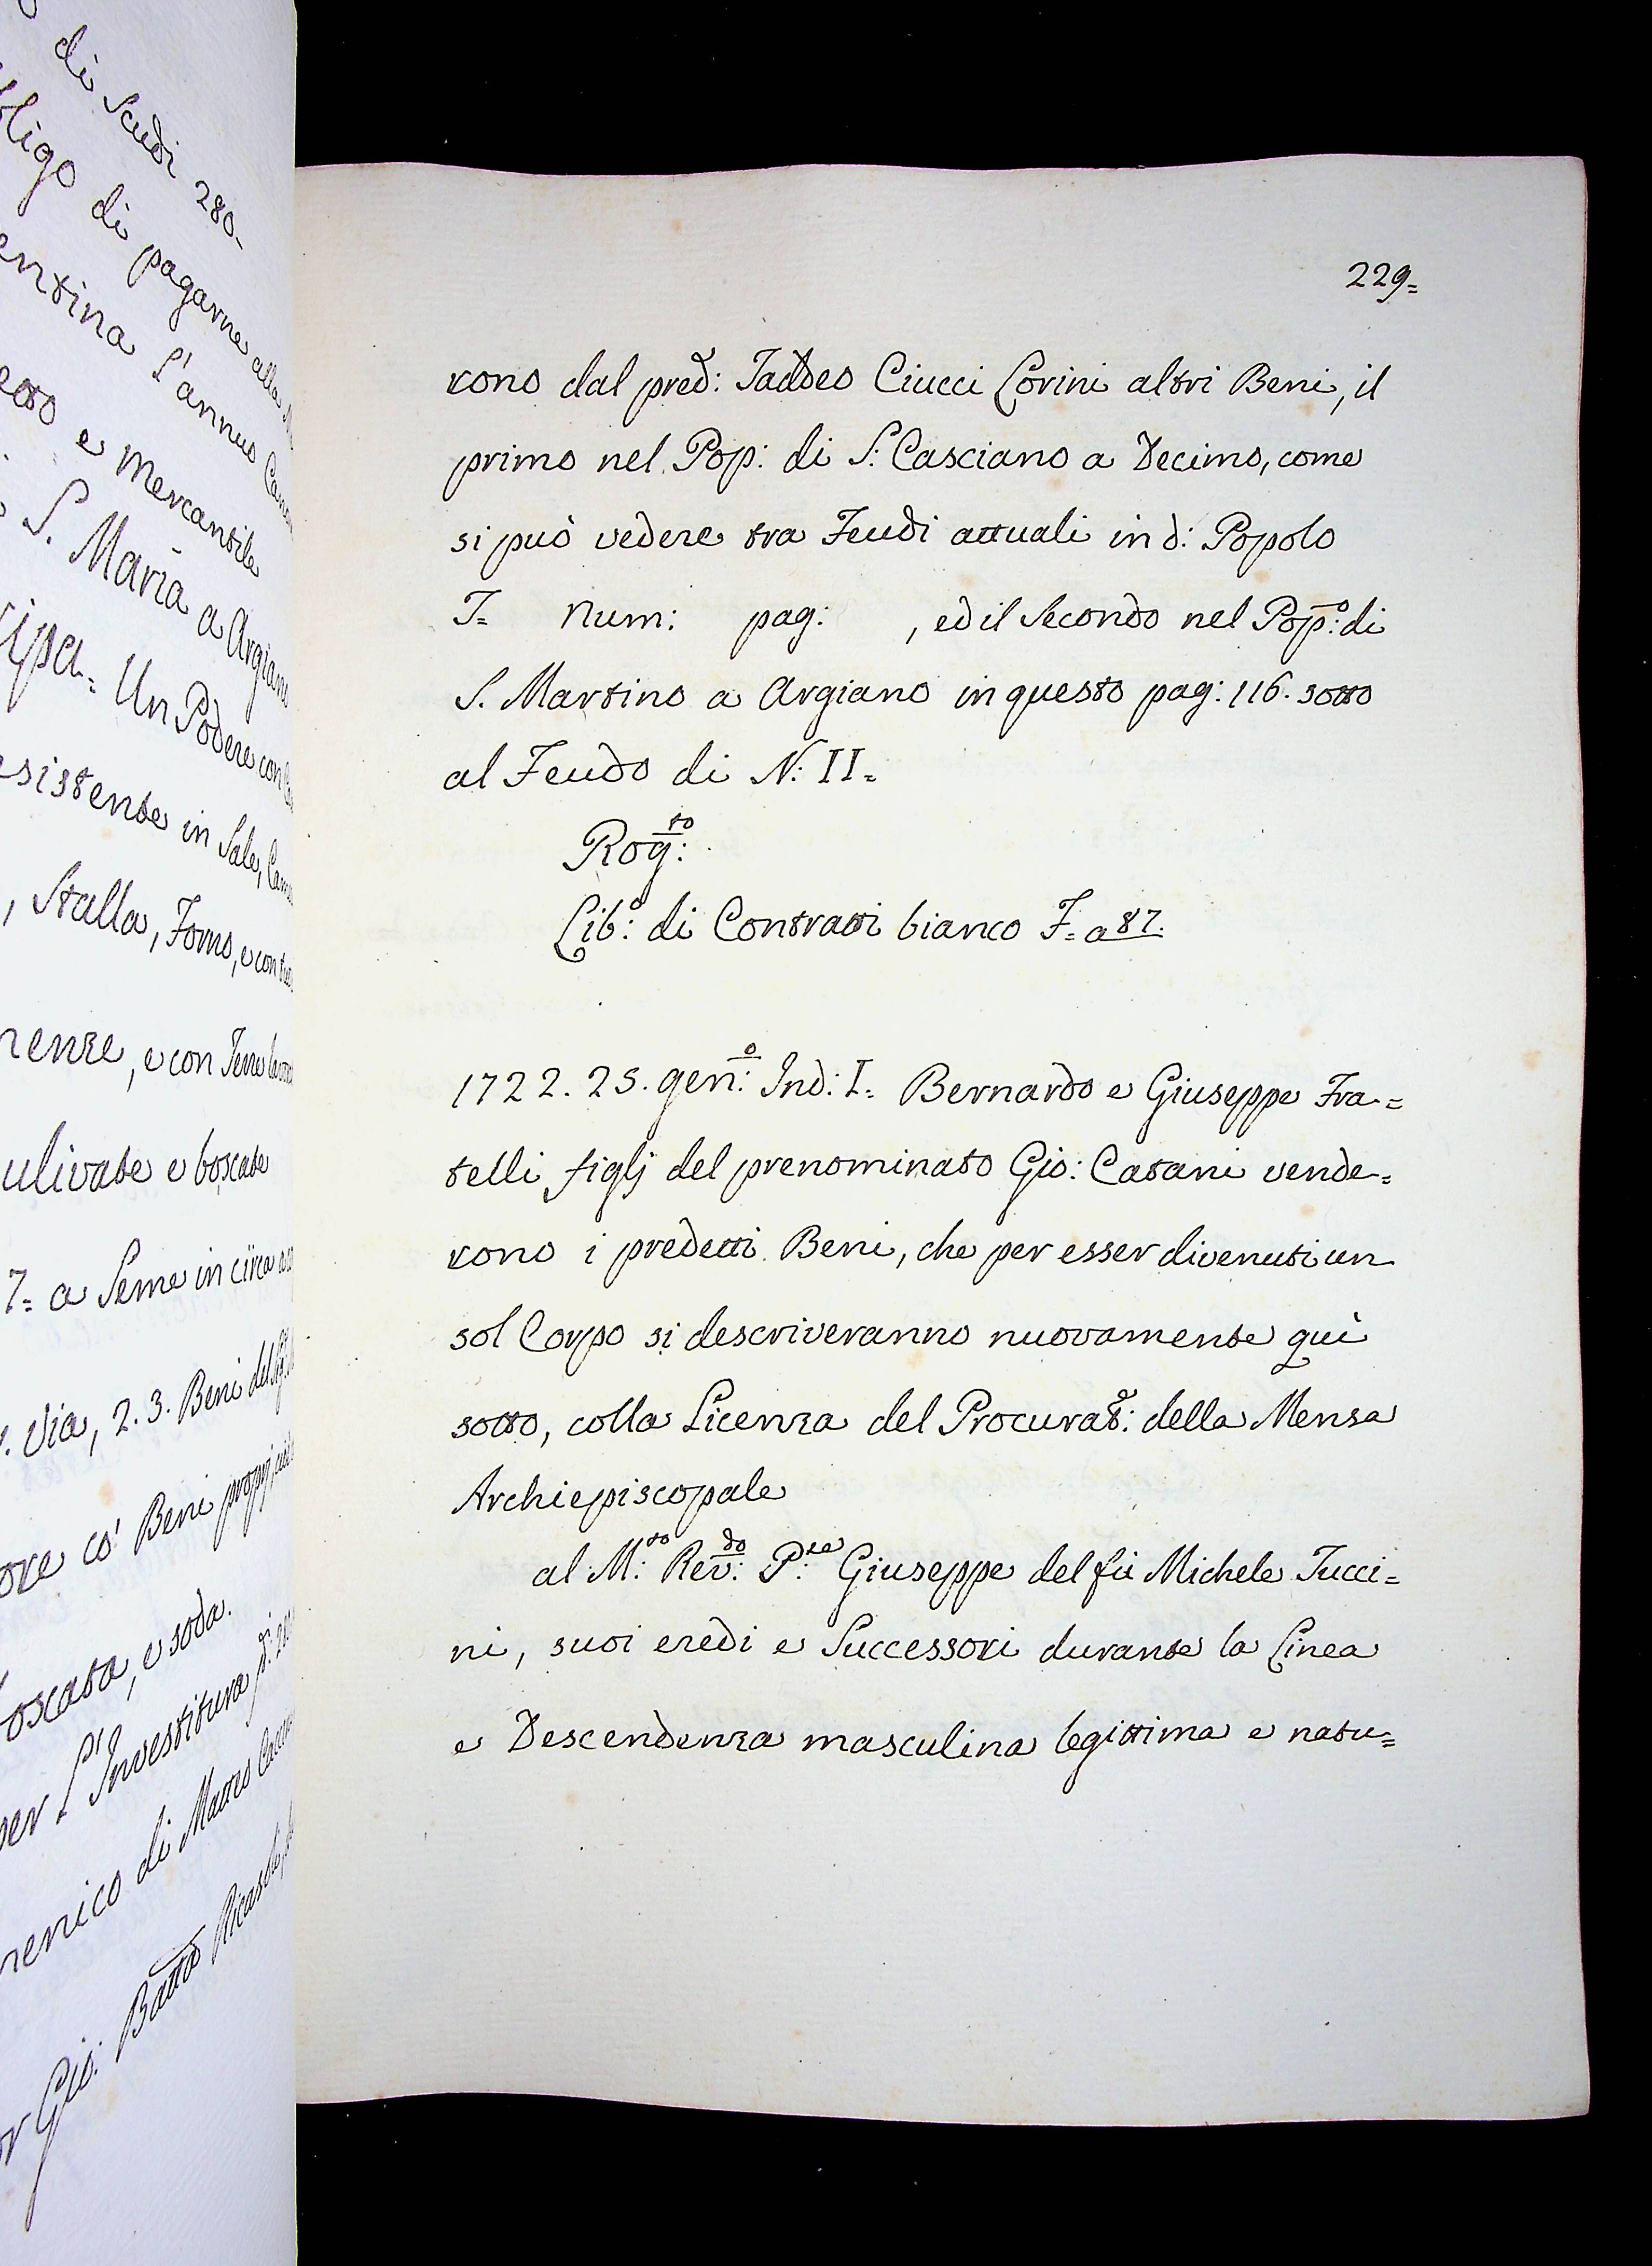 di Scudi 280-
bligo di pagarne alla
entina l'annuo
etto e Mercantile
S. Maria a Argiano
cipa= Un Podere con
esistente in Sale,
, Stalla, Forno, e con
nenze, e con Terre
ulivate e boscate
7= a Seme in circa
. Via, 2. 3. Beni del
ore co' Beni proprj
oscata, e soda.
per l'Investitura
menico di Matteo
Gio: Batta Ricasoli
229=
rono dal pred: Taddeo Ciucci Corini altri Beni, il
primo nel Pop: di S: Casciano a Decimo, come
si può vedere tra Feudi attuali in d: Popolo
T= Num: pag: , ed il Secondo nel Pop:o di
S. Martino a Argiano in questo pag: 116. sotto
al Feudo di N: II=
Rog:to
Lib:o di Contratti bianco F= a 87.
1722. 25. gen:o Ind: I= Bernardo e Giuseppe Fra=
telli figlj del prenominato Gio: Catani vende=
rono i predetti Beni, che per esser divenuti un
sol Corpo si descriveranno nuovamente quì
sotto, colla Licenza del Procurat:e della Mensa
Archiepiscopale
al M:to Rev:do P:te Giuseppe del fù Michele Tucci=
ni, suoi eredi e Successori durante la Linea
e Descendenza masculina legittima e natu=